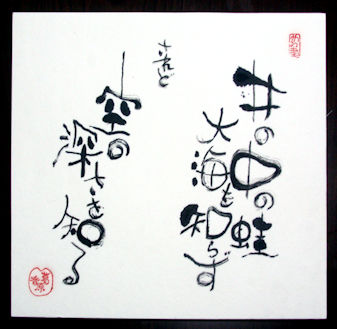 井の中の蛙
大海を知らず
されど
空の
深さを知る